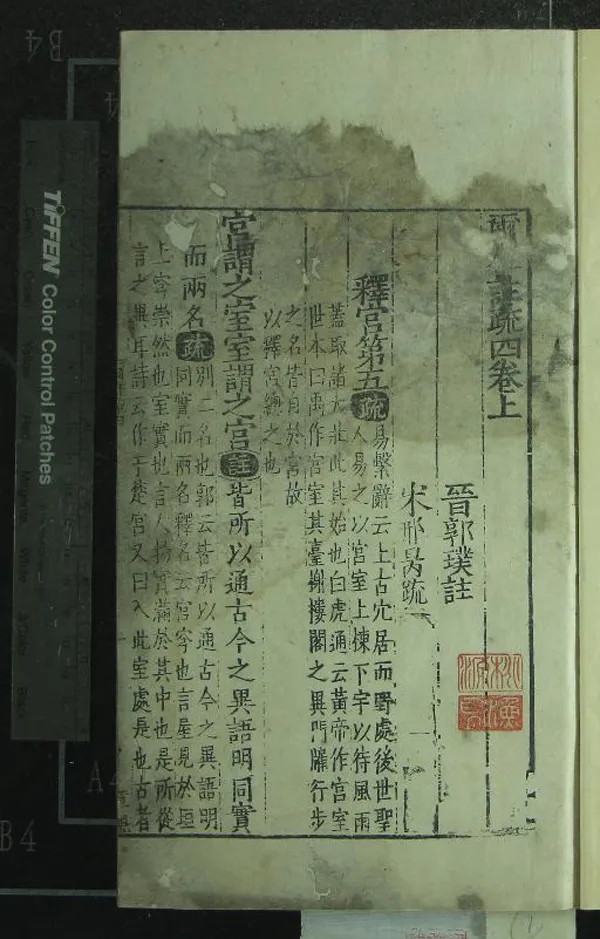 爾 註疏四卷上
晉郭璞註
宋邢昺疏
釋宮第五 疏 易繫辭云上古穴居而野處後世聖
人易之以宮室上棟下宇以待風雨
蓋取諸大壯此其始也白虎通云黃帝作宮室
世本曰禹作宮室其臺榭樓閣之異門牖行步
之名皆自於宮故
以釋宮緫之也
宮謂之室室謂之宮 註 皆所以通古今之異語明同實
而兩名 疏 別二名也郭云皆所以通古今之異語明
同實而兩名釋名云宮穹也言屋見於垣
上穹崇然也室實也言人物實滿於其中也是所從
言之異耳詩云作于楚宮又曰入此室處是也古者
TIFFEN Color Control Patches
B4
A4
B4